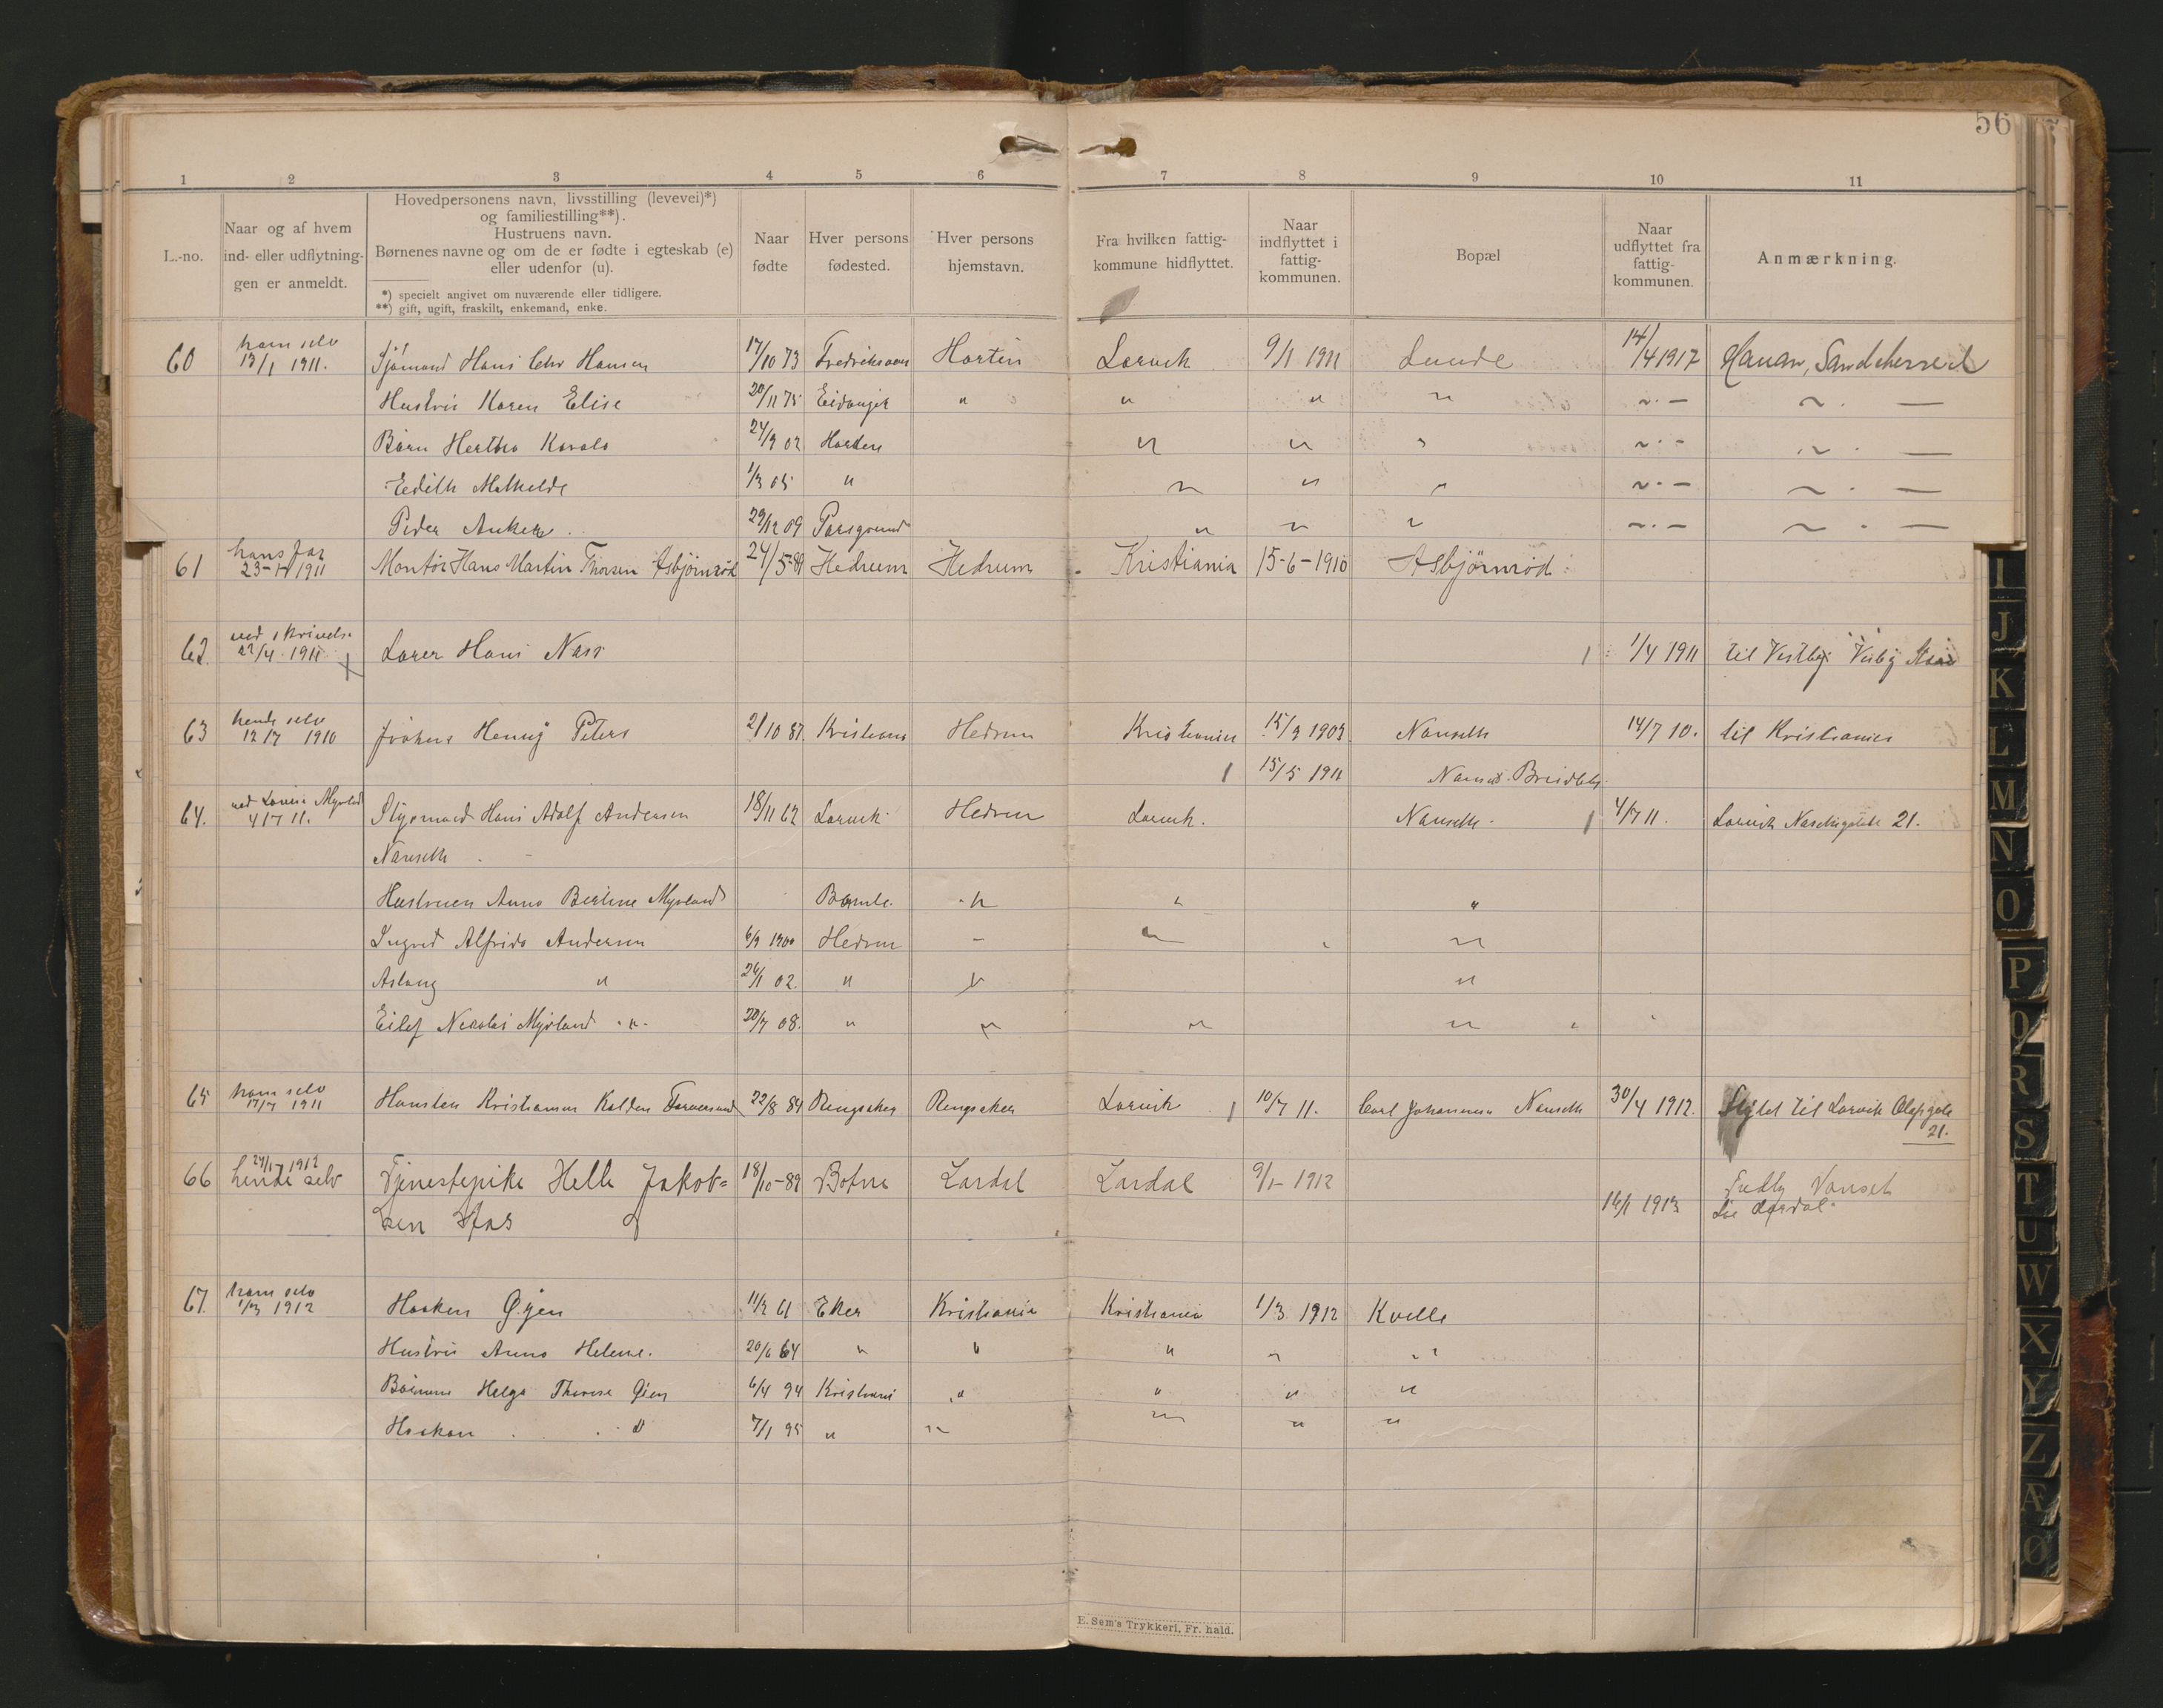 56
1 2 3 4 5 6 7 8 9 10 11
L.-no.
Naar og af hvem
ind- eller udflytnin-
gen er anmeldt.
Hovedpersonens navn, livsstilling (levevei)*)
og familiestilling**).
Hustruens navn.
Børnenes navne og om de er fødte i egteskab (e)
eller udenfor (u).
*) specielt angivet om nuværende eller tidligere.
**) gift, ugift, fraskilt, enkemand, enke.
Naar
fødte
Hver persons
fødested.
Hver persons
hjemstavn.
Fra hvilken fattig-
kommune hidflyttet.
Naar
indflyttet i
fattig-
kommunen.
Bopæl
Naar
udflyttet fra
fattig-
kommunen.
Anmærkning.
60 ham selv 13/1 1911. Sjømand Hans Chr Hansen 17/10 73 Fredriksværn Horten Larvik 9/1 1911 Lunde 14/4 1917 Hauan, Sandeherred
Hustru Karen Elise 20/11 75 Eidanger " " " " ~·— ~·—
Børn Hertha 24/9 02 Horten " " " ~·— ~·—
Edith Mathilde 1/3 05 " " " " ~·— ~·—
Peder Anker 29/12 09 Porsgrund " " " ~·— ~·—
61 hans far 1911 Montør Hans Martin Thorsen Asbjörnröd 24/5-89 Hedrum Hedrum Kristiania 15-6-1910 Asbjörnröd
62. ved skrivelse 22/4 1911 Lærer Hans Næss 1/4 1911 til Vestby
63 hende selv 12/7 1910 Henny Peters 2/10 87. Kristiania Hedrum Kristiania 15/9 1909 Nanseth 14/7 10. til Kristiania
15/5 1911 Nanset
64. ved Lovise Myrland 4/7 11. Styrmand Hans Adolf Andersen 18/11 62 Larvik Hedrum Larvik. Nanseth. 4/7 11. Larvik 21.
Nanseth
Hustruen Anna Berline Myrland Bamle " " "
Ingrid Alfrida Andersen 6/9 1900 Hedrum " " "
Aslaug " 26/1 02. " " "
Eilef Nicolai Myrland " 20/7 08. " " " "
65 ham selv 17/7 1911 Kristiansen Kolden 22/8 84 Ringsaker Ringsaker Larvik 10/7 11. Carl Johannesen Nanseth 30/4 1912. Flyttet til Larvik Olafsgate
21.
66 24/1 1912 hende selv Tjenestepike Helle Jakob= 18/10-89 Botne Lardal Lardal 9/1- 1912
sen Aas 16/1 1913 Lardal
67. ham selv 1/3 1912 Haaken Øyen 11/2 61 Eker Kristiania Kristiania 1/3 1912 Kvelle
Hustru Anna Helene. 20/6 64 " " " " "
Børnene Helga Therese Øien 6/4 94 Kristiania " " " "
Haakon " 7/1 95 " " " " "
E. Sem's Trykkeri, Fr. hald.
I
J
K
L
M
N
O
P
Q
R
S
T
U
W
X
Y
Z
Æ
Ø